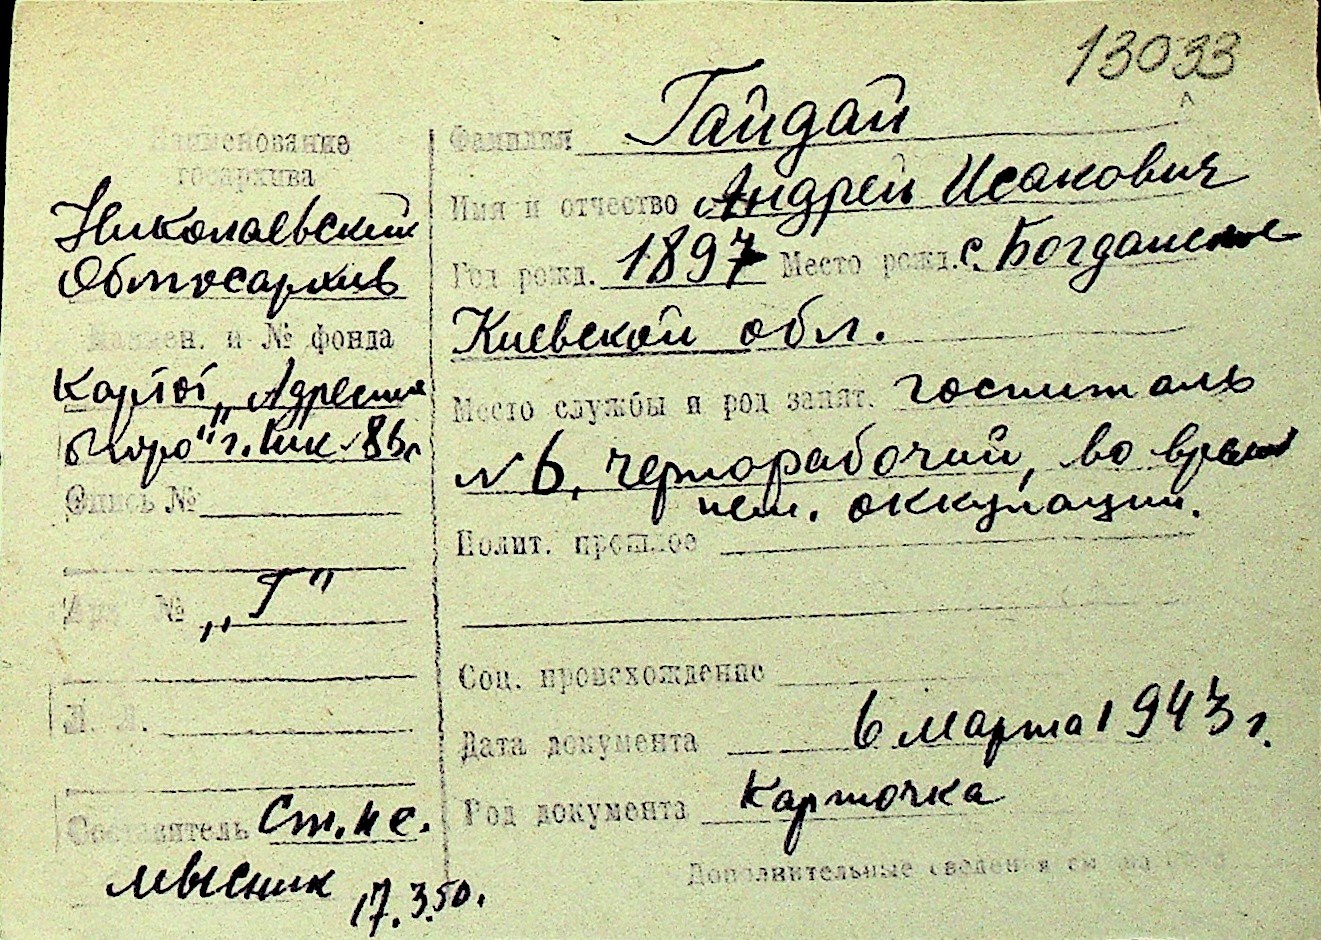 13033
Наименование
госархива
Николаевский
Облгосархив
Наимен. и № фонда
Картот. „Адресное
бюро" г. Ник
Опись №
Арх. № „Г"
Л. Л.
Составитель Ст. н с.
17.3.50.
Фамилия Гайдай
Имя и отчество Андрей Исакович
Год рожд. 1897 Место рожд. с. Богданское
Киевской обл.
Место службы и род занят. госпиталь
№ 6, чернорабочий, во время
нем. оккупации.
Полит. прошлое
Соц. происхождение
Дата документа 6 марта 1943 г.
Род документа Карточка
Дополнительные сведения см. на